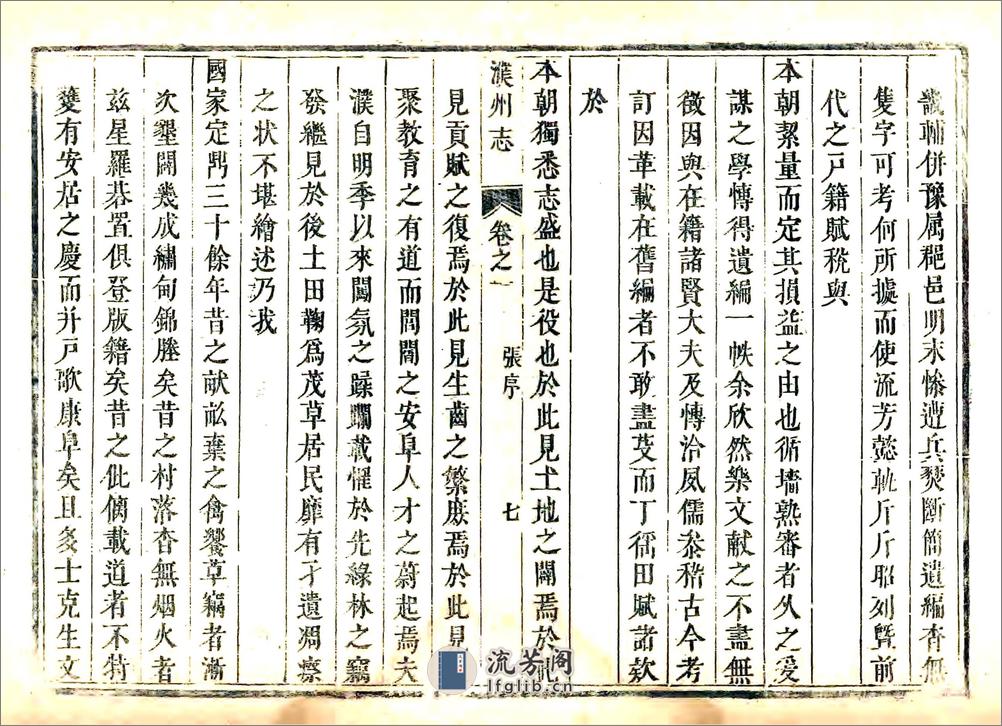 畿輔併豫属郡邑明末慘遭兵燹断簡遺編杳無
隻字可考何所據而使流芳懿軌斤斤昭列暨前
代之戸籍賦稅與
本朝絜量而定其損益之由也循墻熟審者久之爰
謀之學博得遺編一帙余欣然樂文献之不盡無
徵因與在籍諸賢大夫及愽洽夙儒叅稽古今考
訂因革載在舊編者不敢盡芟而丁徭田賦諸欵
於
本朝獨悉志盛也是役也於此見土地之闢焉於此
濮州志 卷之一 張序 七
見貢賦之復焉於此見生齒之繁庶焉於此見
聚教育之有道而閭閻之安阜人才之蔚起焉夫
濮自明季以來闖氛之蹂躪載懼於先綠林之竊
發繼見於後土田鞠爲茂草居民靡有孑遺凋瘵
之状不堪繪述乃我
國家定鼎三十餘年昔之献畝棄之禽饗草竊者漸
次墾闢幾成繡甸錦塍矣昔之村落杳無烟火者
兹星羅碁置俱登版籍矣昔之仳㒧載道者不特
䨇有安居之慶而并戸歌康阜矣且多士克生文
流芳阁
lfglib.cn